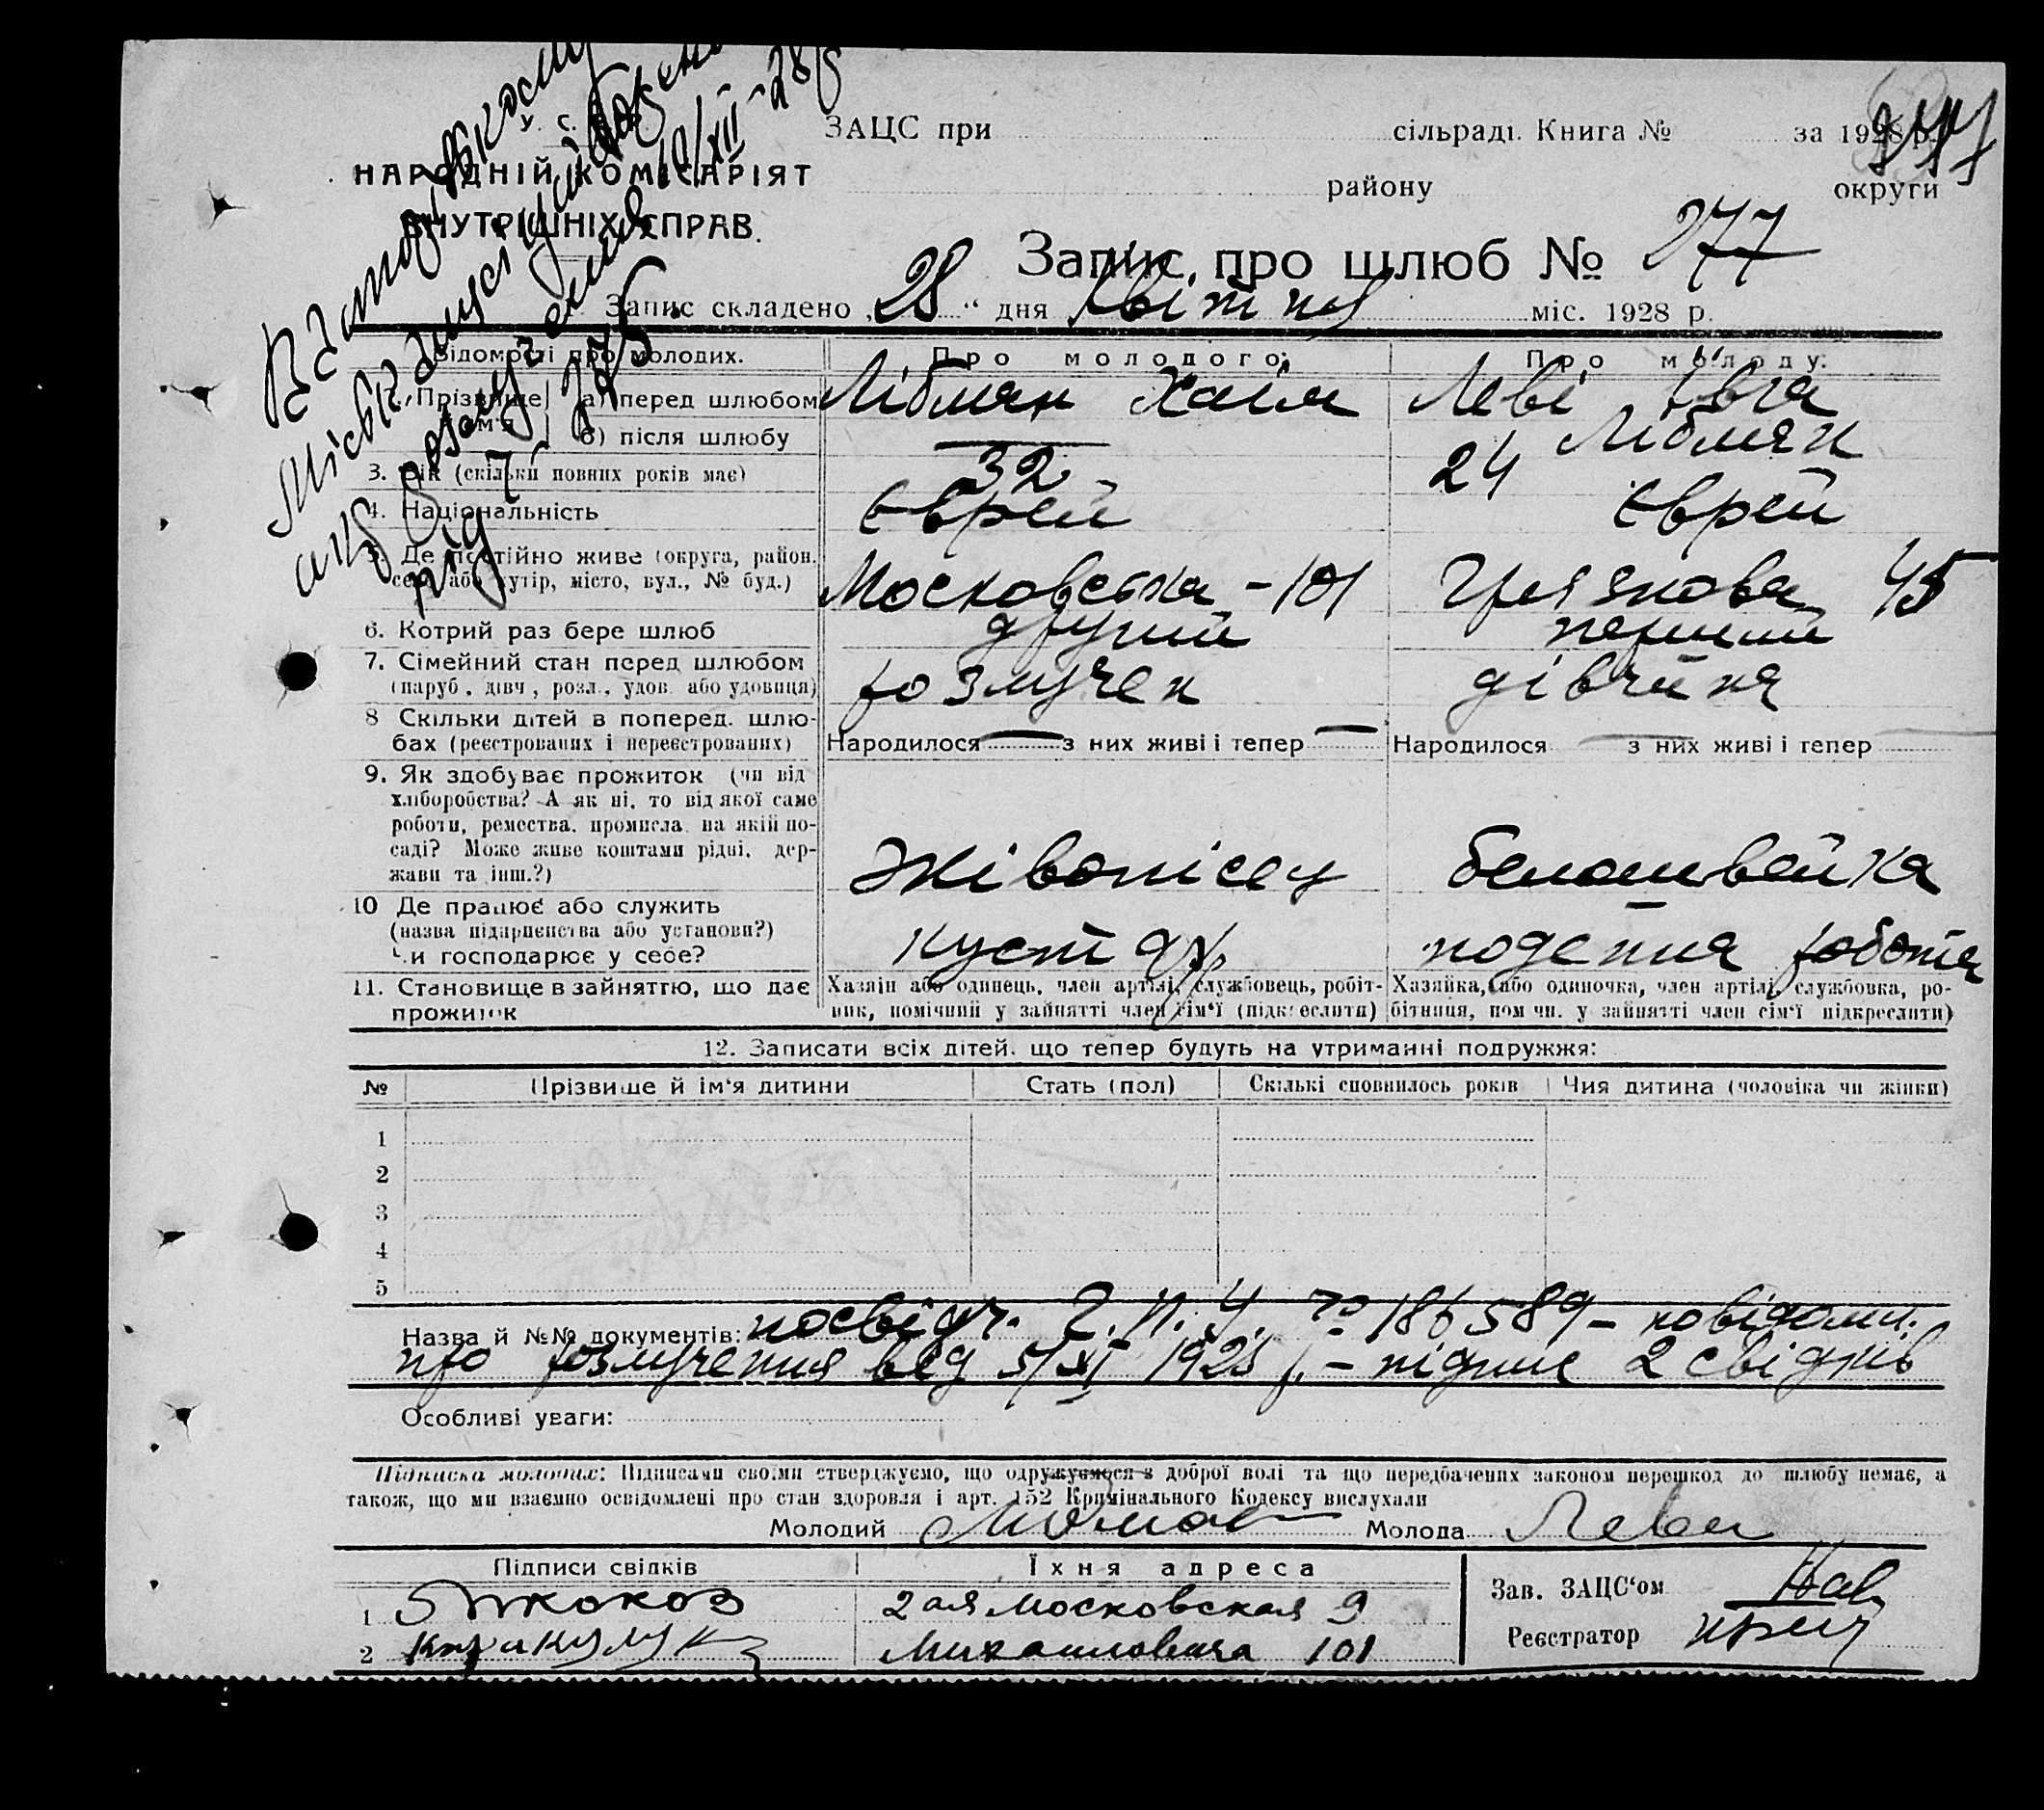 У. С.
ЗАЦС при сільраді. Книга № за 1928 р.
277
НАРОДНІЙ КОМІСАРІЯТ
району округи
ВНУТРІШНІХ СПРАВ.
Запис про шлюб № 277
Запис складено „28“ дня квітня міс. 1928 р.
10/XII-28р
Відомості про молодих. Про молодого: Про молоду:
Прізвище а) перед шлюбом Лібман Хаім Леві
ім'я б) після шлюбу — Лібман
3. Вік (скільки повних років має) 32 24
4. Національність Єврей Єврей
5. Де постійно живе (округа, район,
село або хутір, місто, вул., № буд.) Московська - 101 Грязнова 45
6. Котрий раз бере шлюб другий перший
7. Сімейний стан перед шлюбом
(паруб., дівч., розл., удов. або удовиця) розлучен дівчина
8 Скільки дітей в поперед. шлю-
бах (реєстрованих і нереєстрованих) Народилося — з них живі і тепер — Народилося — з них живі і тепер —
9. Як здобуває прожиток (чи від
хліборобства? А як ні, то від якої саме
роботи, ремества, промисла, на якій по-
саді? Може живе коштами рідні, дер-
жави та інш.?) Жівопісец белошвейка
10 Де працює або служить
(назва підприємства або установи?)
Чи господарює у себе? кустарь поденна робота
11. Становище в зайняттю, що дає
прожиток
Хазяїн або одинець, член артілі, службовець, робіт-
ник, помічний у зайнятті член сім'ї (підкреслити)
Хазяйка, або одиночка, член артілі, службовка, ро-
бітниця, пом чн. у зайнятті член сім'ї підкреслити)
12. Записати всіх дітей, що тепер будуть на утриманні подружжя:
№ Прізвище й ім'я дитини Стать (пол) Скількі сповнилось років Чия дитина (чоловіка чи жінки)
1
2
3
4
5
Назва й №№ документів: посвідч. № 186589 - повідомл.
про розлучення від 5/XI 1925 р. - підпис 2 свідків
Особливі уваги:
Підписка молодих: Підписами своїми стверджуємо, що одружуємося з доброї волі та що передбачених законом перешкод до шлюбу немає, а
також, що ми взаємно освідомлені про стан здоровля і арт. 152 Кримінального Кодексу вислухали
Молодий Молода Леви
Підписи свідків Їхня адреса
1 2ая Московская 9
2 Михайловича 101
Зав. ЗАЦС'ом
Реєстратор